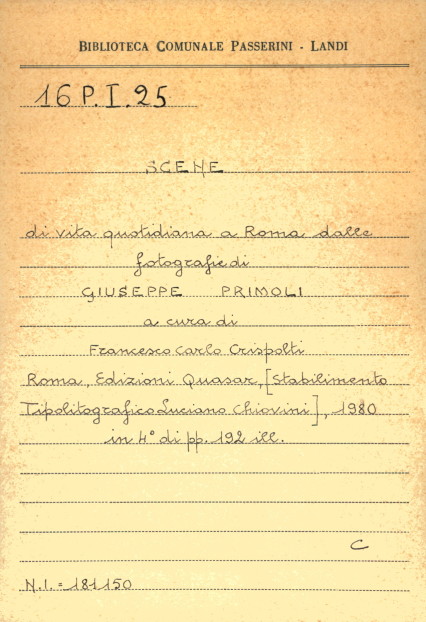 BIBLIOTECA COMUNALE PASSERINI - LANDI
16 P.I.25
SCENE
di vita quotidiana a Roma dalle
fotografie di
GIUSEPPE PRIMOLI
a cura di
Francesco Carlo Crispolti
Roma, Edizioni Quasar, [Stabilimento
Tipolitografico Luciano Chiovini], 1980
in 4° di pp. 192 ill.
C
N.I. = 181150